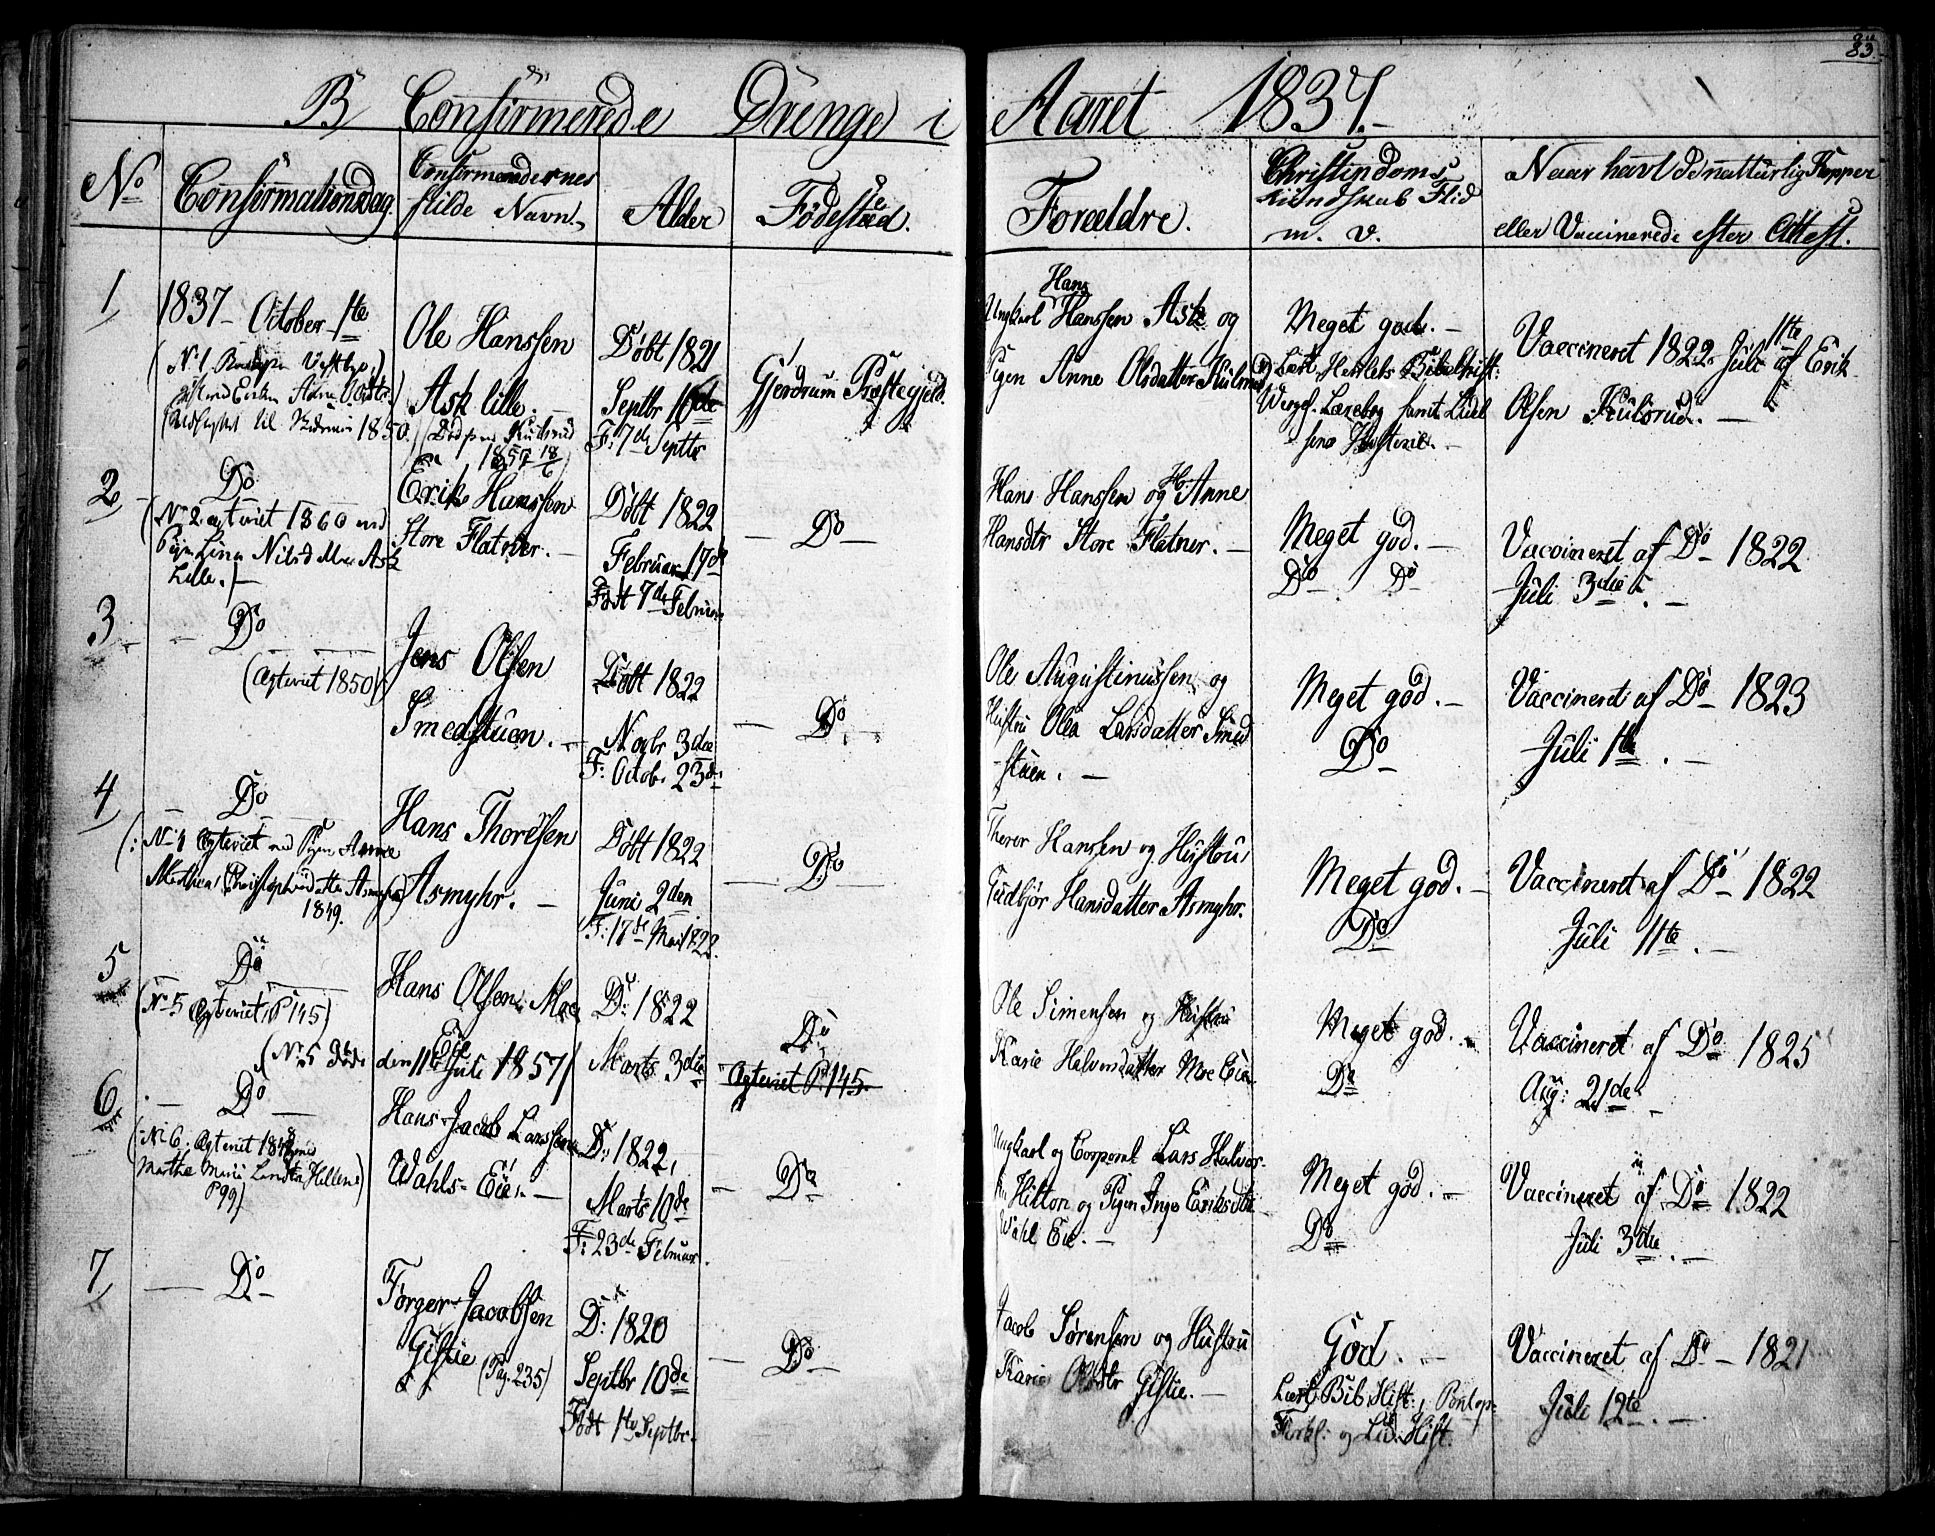 83
B Confirmerede Drenge i Aaret 1837.-
No
Confirmationsdag.
Confirmendernes
fulde Navn.
Alder
Fødested.
Forældre.
Christendoms
Kundskab Flid
m. v.
Naar havt de natturlig Kopper
eller Vaccinerede efter Attest.
1
1837 - October 1te
1850.
Ole Hanssen
Ask lille.
1857 18/6
Døbt 1821
Septbr 16de
F: 7de Septbr
Gjerdrum Præstegjeld.
Hans
Ungkarl Hanssen Ask og
Pigen Anne Olsdatter Kulsrud
Meget god. -
Læst Herslebs Bibelhist:
Wexels Lærebog samt Lud
Vaccineret 1822 Juli 11te af Erik
Olsen Kulsrud. -
2
Do
(No 2 egteviet 1860 med
Pigen Lina Nilsd Moe Ask
Lille. -
Erik Hanssen
Store Flatner. -
Døbt 1822
Februar 17de
Født 7de Februar
- Do -
Hans Hanssen og H. Anne
Hansdtr Store Flatner. -
Meget god. -
Do Do
Vaccineret af Do 1822
Juli 3die. -
3
- Do
(Egteviet 1850)
Jens Olsen
Smedstuen. -
Døbt 1822
Novbr 3die
F: Octob. 23de
- Do -
Ole Augustinussen og
Hustru Olea Larsdatter Smed
stuen. -
Meget god. -
Do
Vaccineret af Do 1823
Juli 1te. -
4
- Do
(: No 4 Egteviet med Pigen Anne
Mathea Christophersdatter Asmyhr)
1849.
Hans Thoresen
Asmyhr. -
Døbt 1822
Juni 2den
F: 17de Mai 1822.
- Do -
Thorer Hanssen og Hustru
Gudbjør Hansdatter Asmyhr.
Meget god. -
Do
Vaccineret af Do 1822
Juli 11te. -
5
Do
(No 5 Egteviet, P 145)
(No 5 Døde den 11te Juli 1857)
Hans Olsen Moe
Eie
D: 1822
Marts 3die
Do
Egteviet P. 145
Ole Simensen og Hustru
Karie Halvorsdatter Moe Eie
Meget god. -
Do
Vaccineret af Do 1825
Aug: 21de -
6
- Do -
(No 6. Egteviet 1848 med
Marthe Marie Larsdtr Hellen)
P 99)
Hans Jacob Larssen
Wahls Eie. -
D: 1822,
Marts 10de
F: 23de Februar.
- Do
Ungkarl og Corporal Lars Halvor-
sen Hilton og Pigen Inge Eriksdtr
Wahl Eie. -
Meget god. -
Do
Vaccineret af Do 1822
Juli 3die. -
7
- Do -
Torger Jacobsen
Gistie (Pag. 235)
D: 1820
Septbr 10de
Født 1te Septbr.
- Do -
Jacob Sørensen og Hustru
Karie Olsdtr Gistie. -
God. -
Læst Bib. Hist:, Pontop:
Forkl: og Lud. Hist.
Vaccineret af Do - 1821
Juli 12te. -